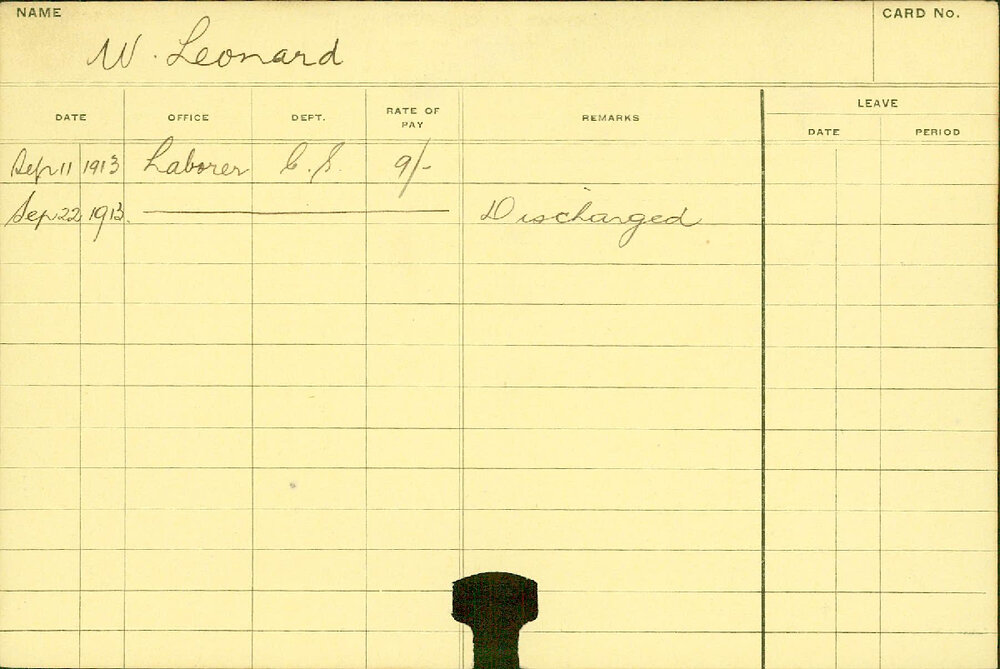 NAME CARD No.
W. Leonard
LEAVE
DATE OFFICE DEPT. RATE OF PAY REMARKS
DATE PERIOD
Sep 11 1913 Laborer C.S. 9/-
Sep 22 1913. Discharged